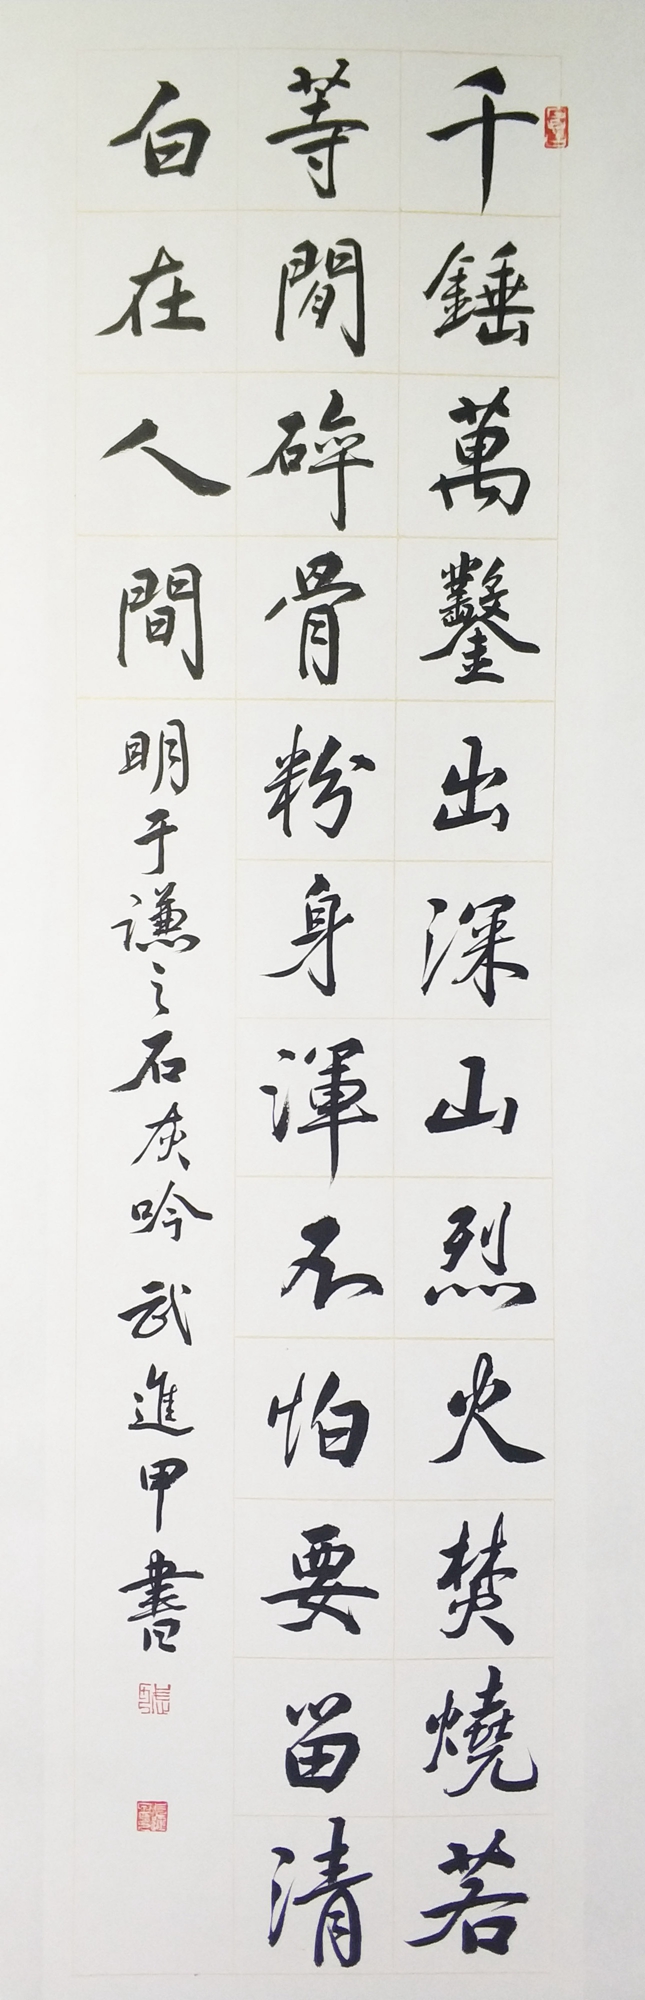 千錘萬鑿出深山烈火焚燒若
等閒碎骨粉身渾不怕要留清
白在人間明于謙之石灰吟武進甲書